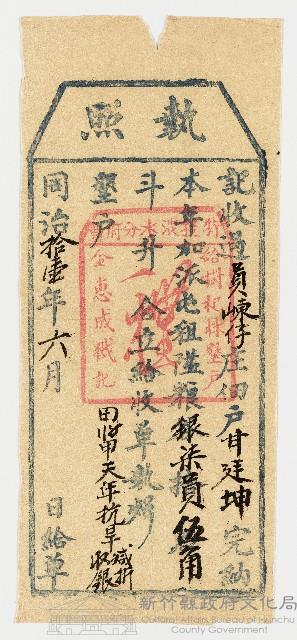 執照
記收過員崠仔庄佃戶甘廷坤完納
本年加派屯租隘糧銀柒員伍角
斗升合立給收單執照
墾戶
金惠成戳記
田甾天年抗旱減折收銀
同治拾壹年六月 日給單
新竹縣政府文化局
Cultural Affairs Bureau of Hsinchu
County Government